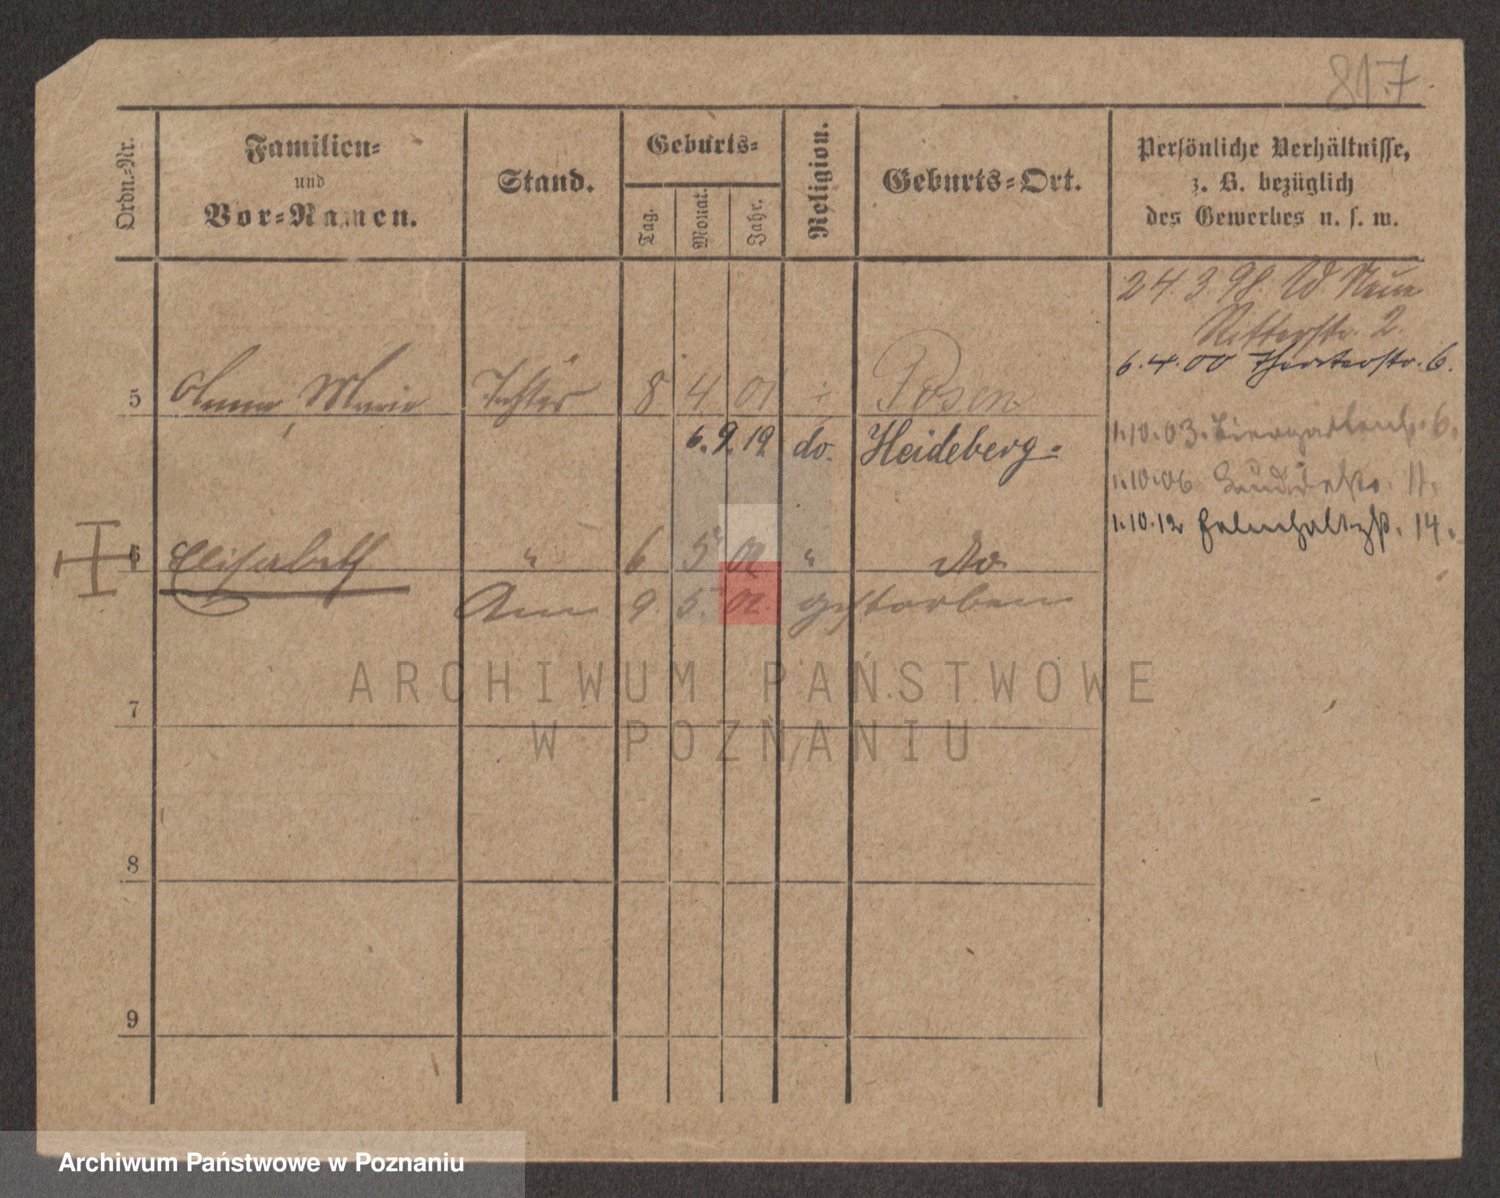 817.
Ordn.-Nr.
Familien-
und
Vor-Namen.
Stand.
Geburts-
Tag.
Monat.
Jahr.
Religion.
Geburts-Ort.
Persönliche Verhältnisse,
z. B. bezüglich
des Gewerbes u. s. w.
24. 3. 98.
Ritterstr. 2.
6. 4. 00 6.
5 Anna, Marie Tochter 8 4. 01 Posen
6. 9. 19. do. Heideberg
1.10.03. 6.
1.10.06 11.
1.10.12 14.
6 Elisabeth " 6 5 02 " do
Am 9. 5. 02. gestorben
7
8
9
ARCHIWUM PAŃSTWOWE
W POZNANIU
Archiwum Państwowe w Poznaniu